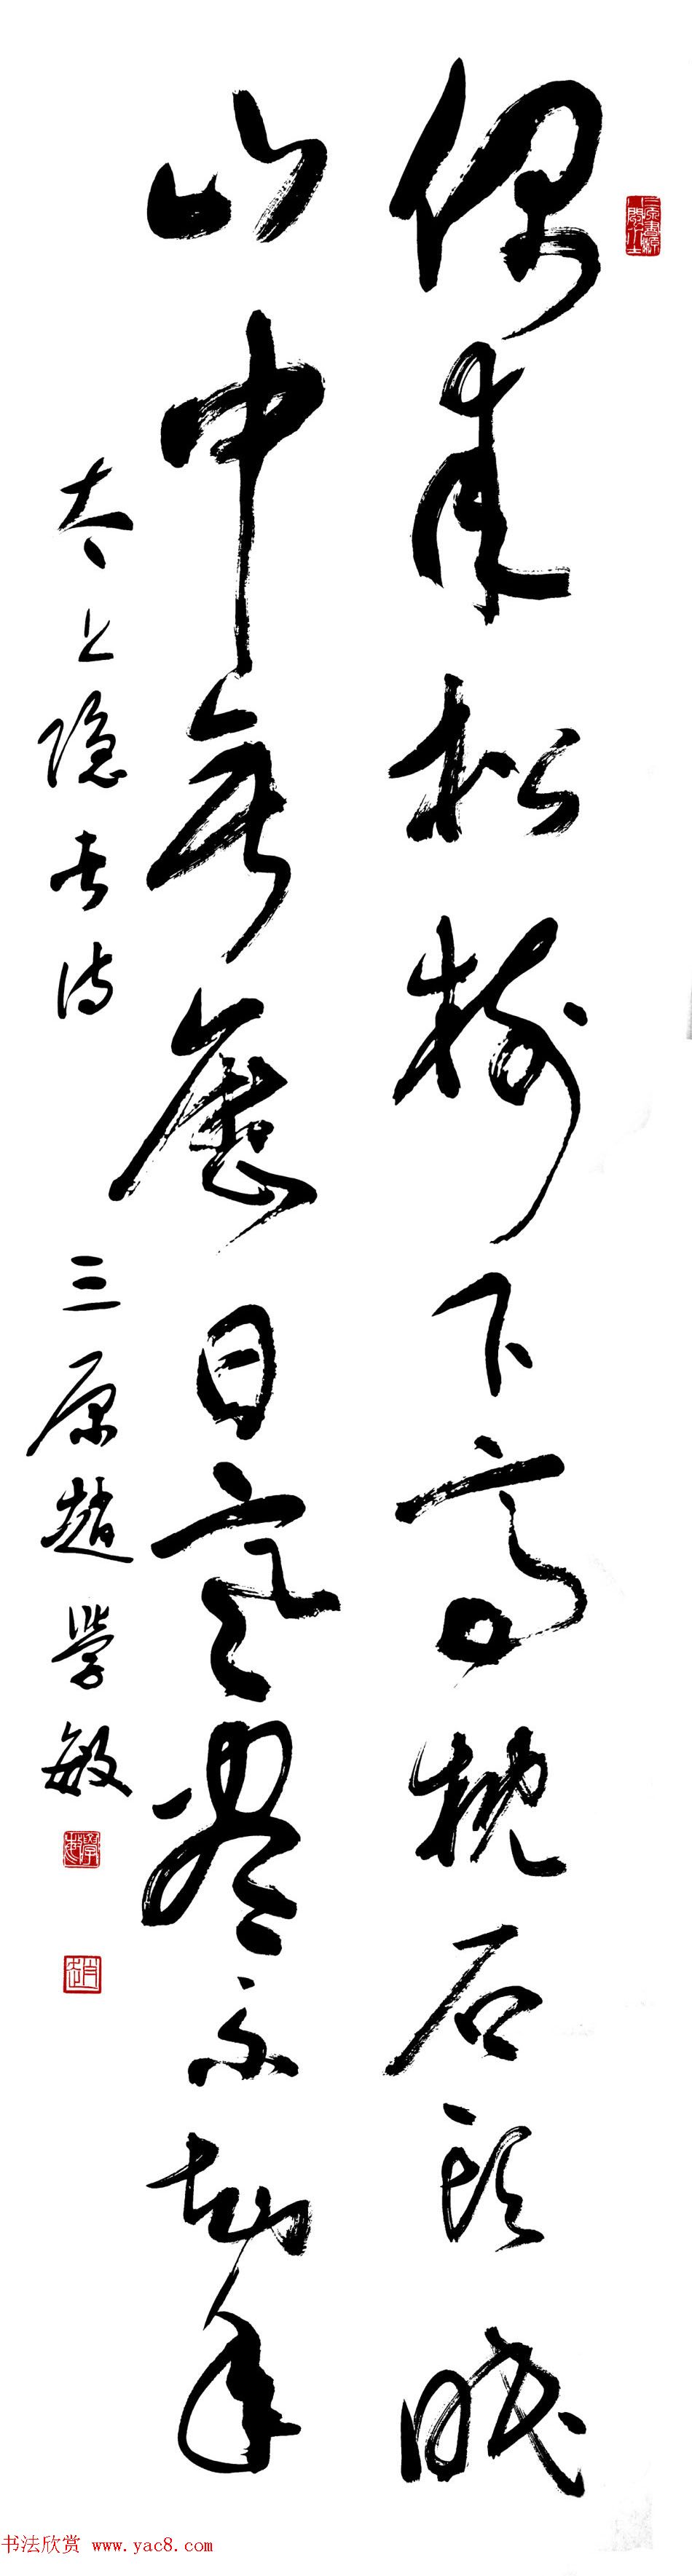 偶来松树下高枕石头眠
山中无历日寒尽不知年
太上隐者诗 三原赵学敏
书法欣赏 www.yac8.com